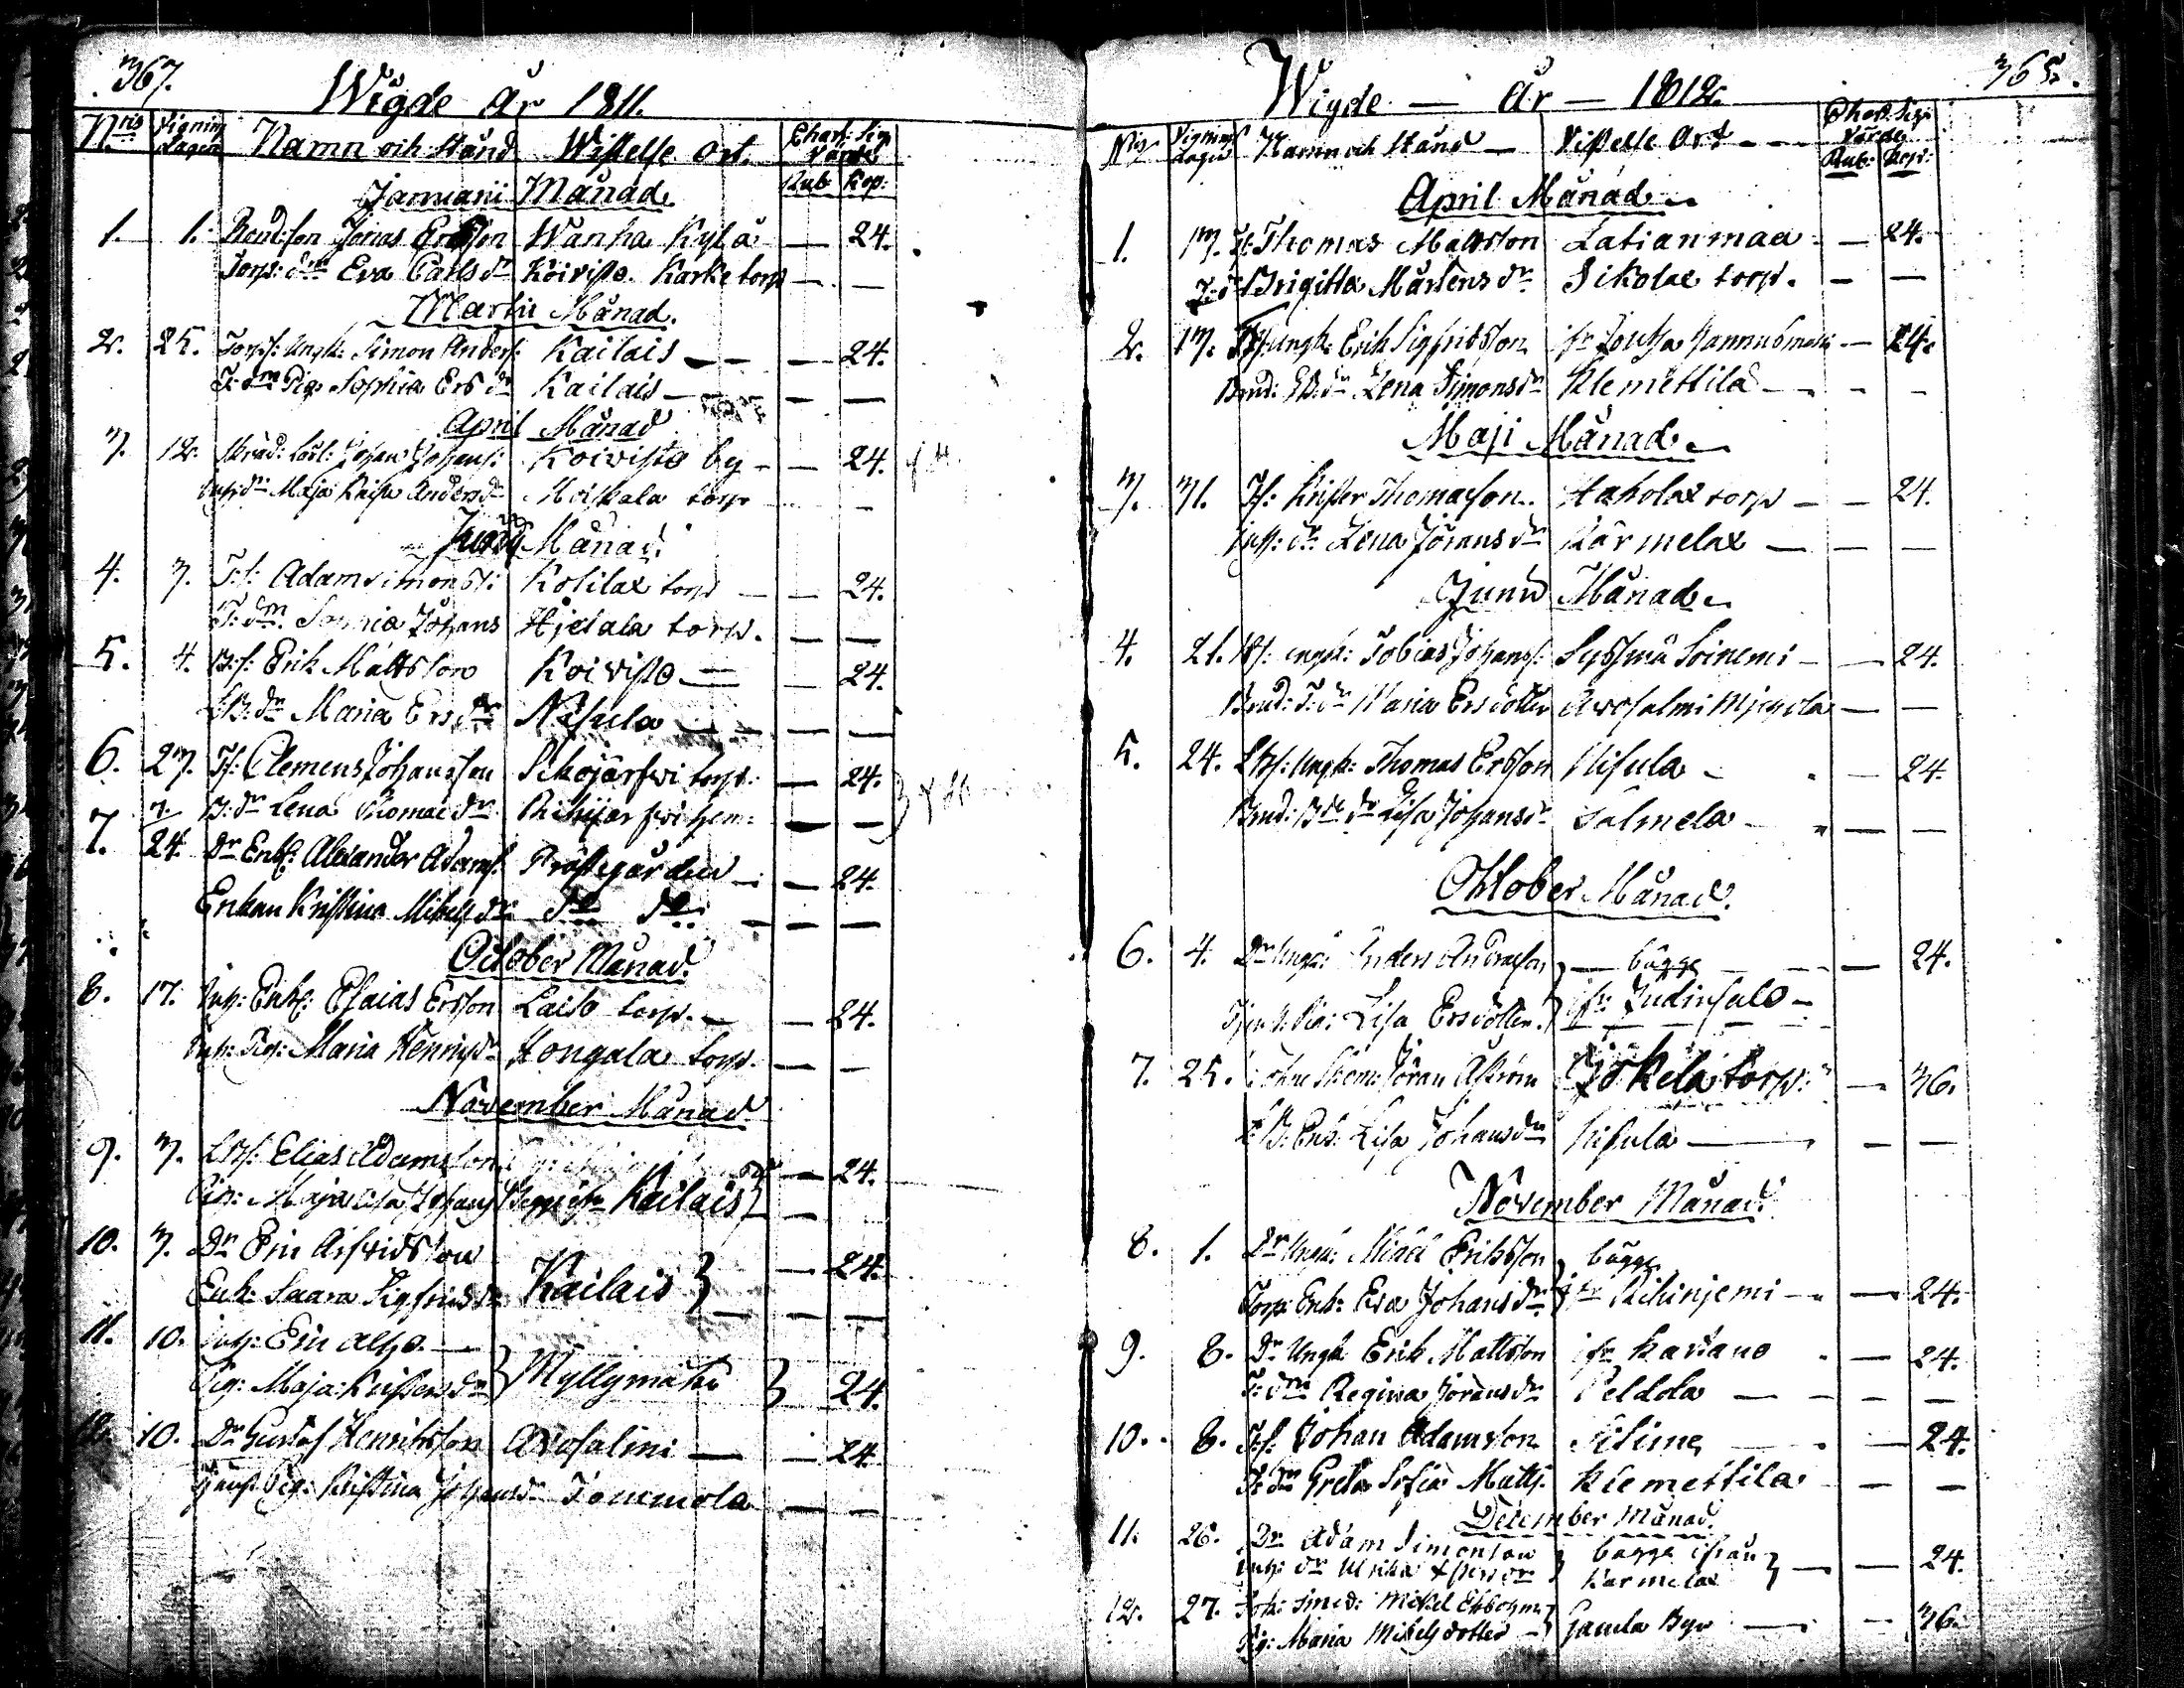 367.
Wigde år 1811.
Nris Wignings Dagen Namn och Stånd Wistelse ort. Chart: Sig: Värde
Rub Kop:
Januarii Månad
1. 1. Bond:son Jonas Ersson Wanha Kylä — 24.
Torp: dr Eva Carlsdr Koivisto Karke torp — —
Martii Månad.
2. 25. Torps: Ungk: Simon Anders: Kailais — — 24.
T: dm Pig: Sophia Ersdr Kailais — — —
April Månad
3. 12. Johan Johans: Koivisto by — — 24.
Inh: dr Maja Kaisa Andersdr Moiskala torp —
Månad
4. 3. T: s: Adam Simonss: Kotilax torp — — 24.
T: dm. Johans Hjetala torp. — —
5. 4. B: s: Erik Mattsson Koivisto — — 24.
LB: dr Maria Ersdr Nisula — — —
6. 23. Ts: Clemens Johansson Sikojärfwi torp: — 24.
B: dr Lena Thomaedr hem: — —
7. 24. Dr Enkl: Alexander Adams: Prästegården — — 24.
Enkan Kristina Mikelsdr do do — — —
October Månad.
8. 17. Inh: Enkl: Esaias Ersson Laiso torp. — — 24.
Inh: Pig: Maria Henricsdr Hongala torp. — —
November Månad
9. 3. LBs: Elias Adamsson — 24.
Pig: Maja Lisa Johans Kailais —
10. 3. Dr Eric Arfvidsson — 24.
Enk: Saara Sigfridsdr Kailais } — —
11. 10. Inh: Eric —
Pig: Maja Kristersdr } Myllymäki } 24.
12. 10. Dr Gustaf Henriksson Avosalmi — — 24
Pig: Kristina Johansdr Tommola — —
365.
Wigde — År — 1812.
Nris Wignings Dagen Namn och Stånd — Vistelse Ort — — Chart: Sig: Värde
Rub: Kop:
April Månad
1. 13. Ts: Thomas Mattsson Latianmaa — — 24.
T: dr Brigitta Mårtensdr Sikolax torp. — —
2. 13. Ungk: Erik Sigfridsson ifr — 24.
Brud: LB: dr Lena Simonsdr Klemettilä — — —
Maji Månad
3. 31. Ts: Krister Thomasson Haholax torp — — 24.
Inh: dr Lena Jöransdr Kärmelax — — —
Junii Månad
4. 21. Bs: ungk: Tobias Johans: Sysmä Soinemi — — 24.
Brud: T: dr Maria Ersdotter Avosalmi — —
5. 24. LBs: Ungk: Thomas Ersson Nisula — — 24.
Brud: Bde dr Lisa Johansdr Salmela — — —
Oktober Månad.
6. 4. Dr Ungk: Anders Andersson } — bägge — — — 24.
Pig: Lisa Ersdotter. } ifr: Judinsalo —
7. 25. Jöran Åström Jokela torp: — 36.
LB: Enk: Lisa Johansdr Nisula — — —
November Månad.
8. 1. Dr Ungk: Michel Eriksson } bägge
Torp: Enk: Eva Johansdr } ifr Rihinjemi — — 24.
9. 8. Dr Ungk Erik Mattsson ifr Kavano — 24.
T: dm Regina Jöransdr Peldola — — — —
10. 8. Ts: Johan Adamsson — — 24.
T: dm Greta Sofia Matts. Klemettila — —
December Månad.
11. 26. Dr Adam Simonsson } bägge ifrån } — — 24.
Inh: dr Ulrika } Kärmelax
12. 27. smed: Mikel Ekbohm }
Pig: Maria Mikelsdotter } Gamla Byn — — 36.